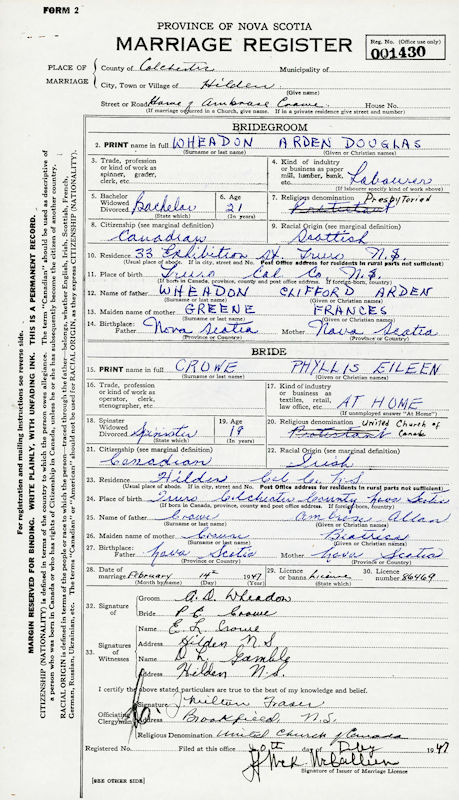 FORM 2
PROVINCE OF NOVA SCOTIA
MARRIAGE REGISTER
Reg. No. (Office use only)
001430
PLACE OF MARRIAGE
County of Colchester Municipality of
City, Town or Village of Hilden
(Give name)
Street or Road Home of Ambrose Crowe House No.
(If marriage occurred in a Church, give name. If in a private residence give street and number)
BRIDEGROOM
2. PRINT name in full WHEADON ARDEN DOUGLAS
(Surname or last name) (Given or Christian names)
3. Trade, profession or kind of work as spinner, grader, clerk, etc.
4. Kind of industry or business as paper mill, lumber, bank, etc. Labourer
(If labourer specify kind of work above)
5. Bachelor Widowed Divorced Bachelor
(State which)
6. Age 21
(In years)
7. Religious denomination Presbyterian
Protestant
8. Citizenship (see marginal definition) Canadian
9. Racial Origin (see marginal definition) Scottish
10. Residence 33 Exhibition St Truro N.S.
(Usual place of abode. If in city, street and No. Post Office address for residents in rural parts not sufficient)
11. Place of birth Truro Col. Co N.S.
(If born in Canada, province, county and post office address. If foreign-born, country)
12. Name of father WHEADON CLIFFORD ARDEN
(Surname or last name) (Given or Christian names)
13. Maiden name of mother GREENE FRANCES
(Surname or last name) (Given or Christian names)
14. Birthplace: Father Nova Scotia Mother Nova Scotia
(Province or Country) (Province or Country)
BRIDE
15. PRINT name in full CROWE PHYLLIS EILEEN
(Surname or last name) (Given or Christian names)
16. Trade, profession or kind of work as operator, clerk, stenographer, etc.
17. Kind of industry or business as textiles, retail, law office, etc. AT HOME
(If unemployed answer "At Home")
18. Spinster Widowed Divorced Spinster
(State which)
19. Age 19
(In years)
20. Religious denomination United Church of Canada
Protestant
21. Citizenship (see marginal definition) Canadian
22. Racial Origin (see marginal definition) Irish
23. Residence Hilden Col Co N.S
(Usual place of abode. If in city, street and No. Post Office address for residents in rural parts not sufficient)
24. Place of birth Truro Colchester County Nova Scotia
(If born in Canada, province, county and post office address. If foreign-born, country)
25. Name of father Crowe Ambrose Allan
(Surname or last name) (Given or Christian names)
26. Maiden name of mother Beatrice
(Surname or last name) (Given or Christian names)
27. Birthplace: Father Nova Scotia Mother Nova Scotia
(Province or Country) (Province or Country)
28. Date of marriage February 14th 1947
(Month by name) (Day) (Year)
29. Licence or banns Licence
(State which)
30. Licence number 86469
32. Signature of
Groom A. D. Wheadon
Bride P. E. Crowe
33. Signature of Witnesses
Name E. L. Crowe
Address Hilden N.S
Name D. L. Gamble
Address Hilden N.S.
I certify the above stated particulars are true to the best of my knowledge and belief.
Officiating Clergyman
Signature J. Milton Fraser
Address Brookfield, N.S.
Religious Denomination United Church of Canada
Registered No. Filed at this office day of 1947
Signature of Issuer of Marriage Licence
[SEE OTHER SIDE]
For registration and mailing instructions see reverse side.
MARGIN RESERVED FOR BINDING. WRITE PLAINLY, WITH UNFADING INK. THIS IS A PERMANENT RECORD.
CITIZENSHIP (NATIONALITY) is defined in terms of the country to which the person owes allegiance. The term "Canadian" should be used as descriptive of
a person who was born in Canada or who has rights of Citizenship in Canada, unless he or she has subsequently become the citizen of another country.
RACIAL ORIGIN is defined in terms of the people or race to which the person—traced through the father—belongs, whether English, Irish, Scottish, French,
German, Russian, Ukrainian, etc. The terms "Canadian" or "American" should not be used for RACIAL ORIGIN, as they express CITIZENSHIP (NATIONALITY).